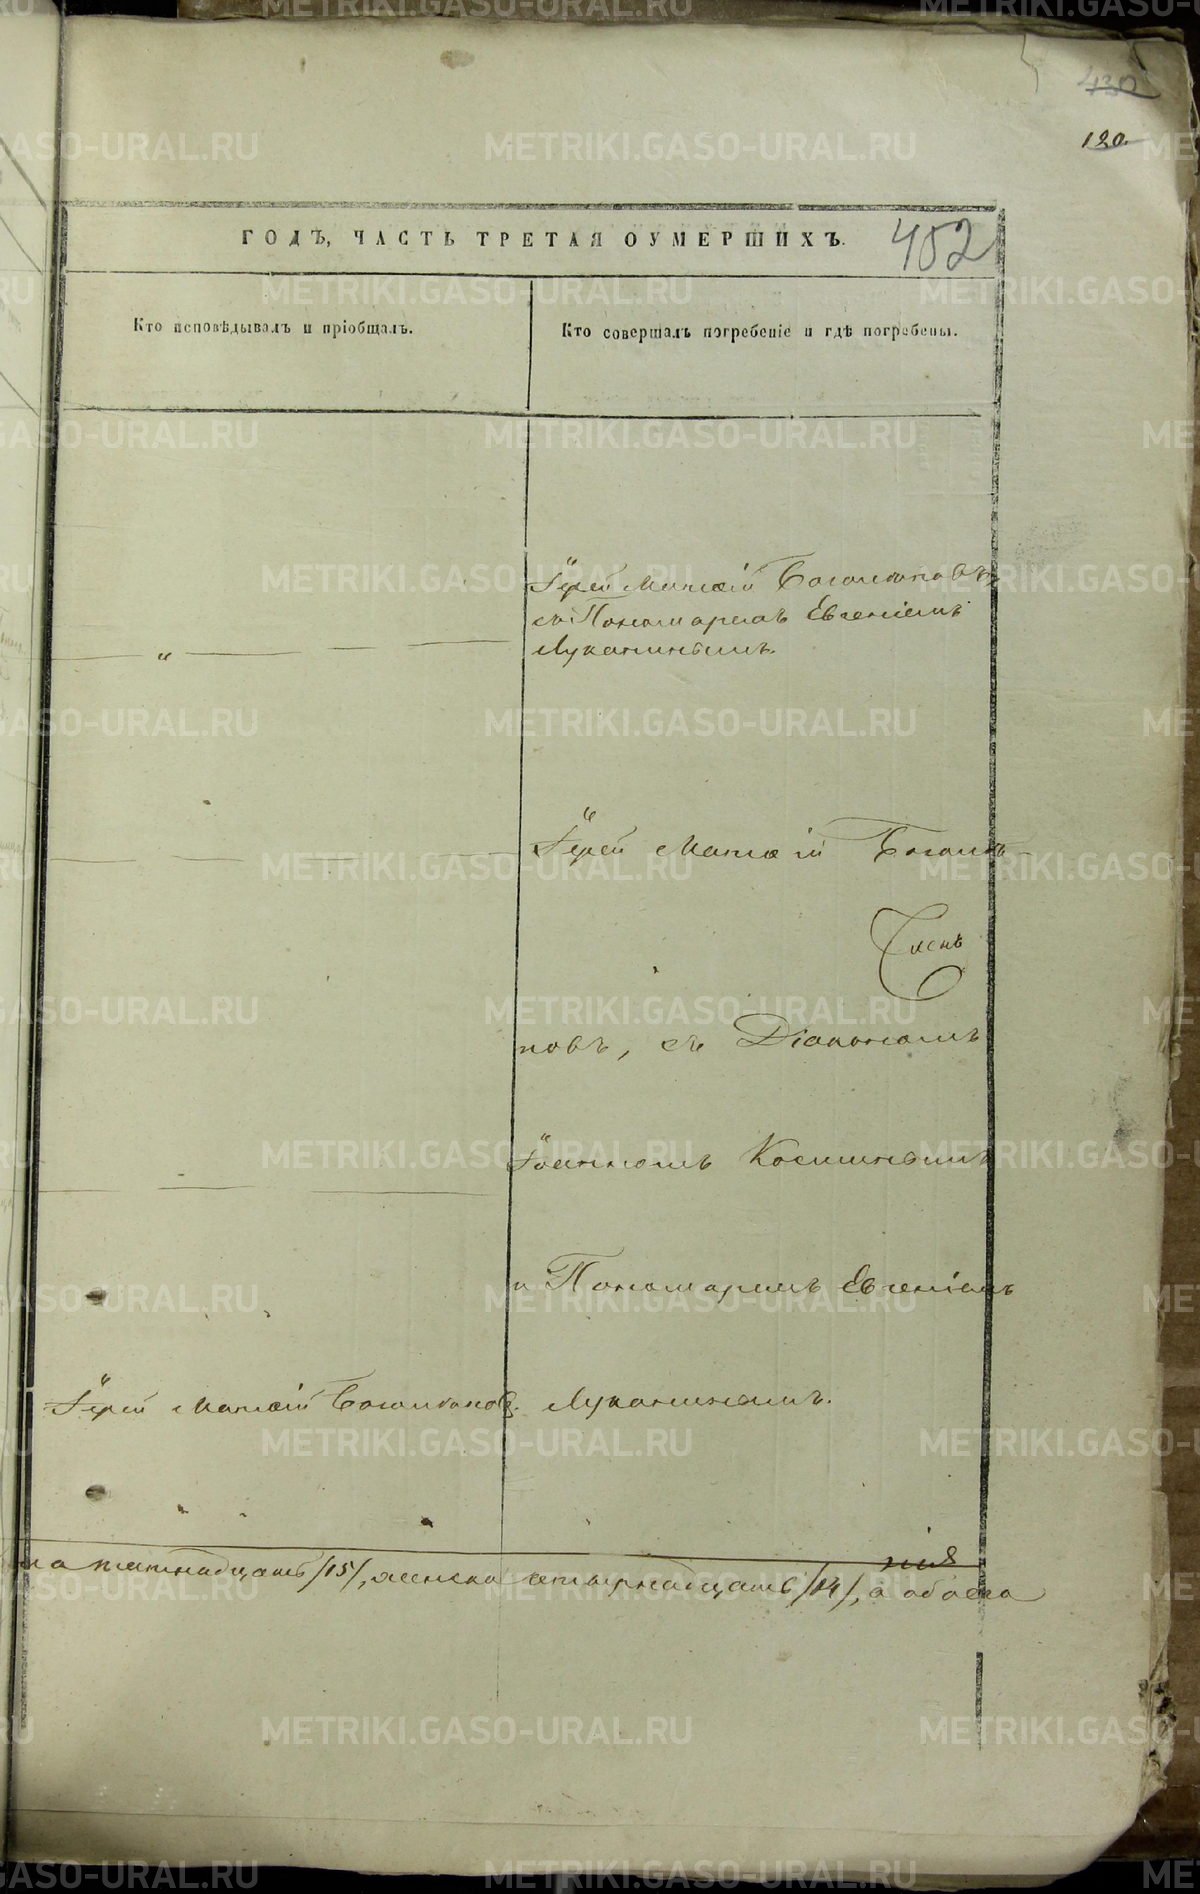 430
120.
ГОДЪ, ЧАСТЬ ТРЕТАЯ О УМЕРШИХЪ.
402
Кто исповѣдывалъ и пріобщалъ.
Кто совершалъ погребеніе и гдѣ погребены.
Іерей Матѳій Боголюповъ,
съ Пономаремъ Евгеніемъ
Лукинымъ.
Іерей Матѳій Боголю-
Членъ
повъ, съ Діакономъ
Іоанномъ Косминымъ
и Пономаремъ Евгеніемъ
Іерей Матѳій Боголюпов. Лукинымъ.
пятнадцать /15/, женска четырнадцать /14/, а обоего
METRIKI.GASO-URAL.RU